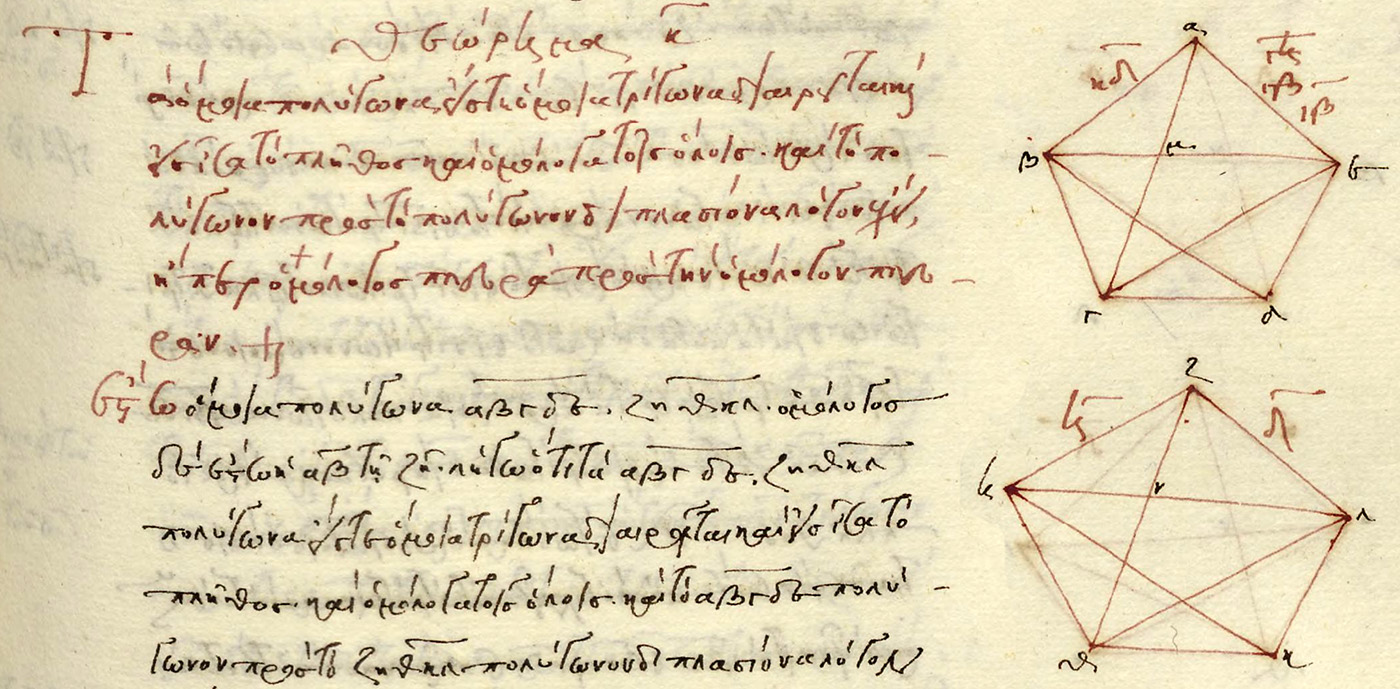 Θεώρημα κ̅
Τὰ ὅμοια πολύγωνα, εἴς τε ὅμοια τρίγωνα διαιρεῖται καὶ
εἰς ἴσα τὸ πλῆθος καὶ ὁμόλογα τοῖς ὅλοις. καὶ τὸ πο
λύγωνον πρὸς τὸ πολύγωνον διπλασίονα λόγον ἔχει,
ἤπερ ὁμόλογος πλευρὰ πρὸς τὴν ὁμόλογον πλευ
ράν.
Ἔστω ὅμοια πολύγωνα αβγδε. ζηθκλ. ὁμόλογος
δὲ ἔστω ἡ αβ τῇ ζη. λέγω ὅτι τὰ αβγδε, ζηθκλ
πολύγωνα εἴς τε ὅμοια τρίγωνα διαιρεῖται καὶ εἰς ἴσα τὸ
πλῆθος καὶ ὁμόλογα τοῖς ὅλοις. καὶ τὸ αβγδε πολύ
γωνον πρὸς τὸ ζηθκλ πολύγωνον διπλασίονα λόγον
α
κδ
ιβ
ιβ
β
μ
ε
γ
δ
ζ
ς
δ
ν
λ
θ
κ